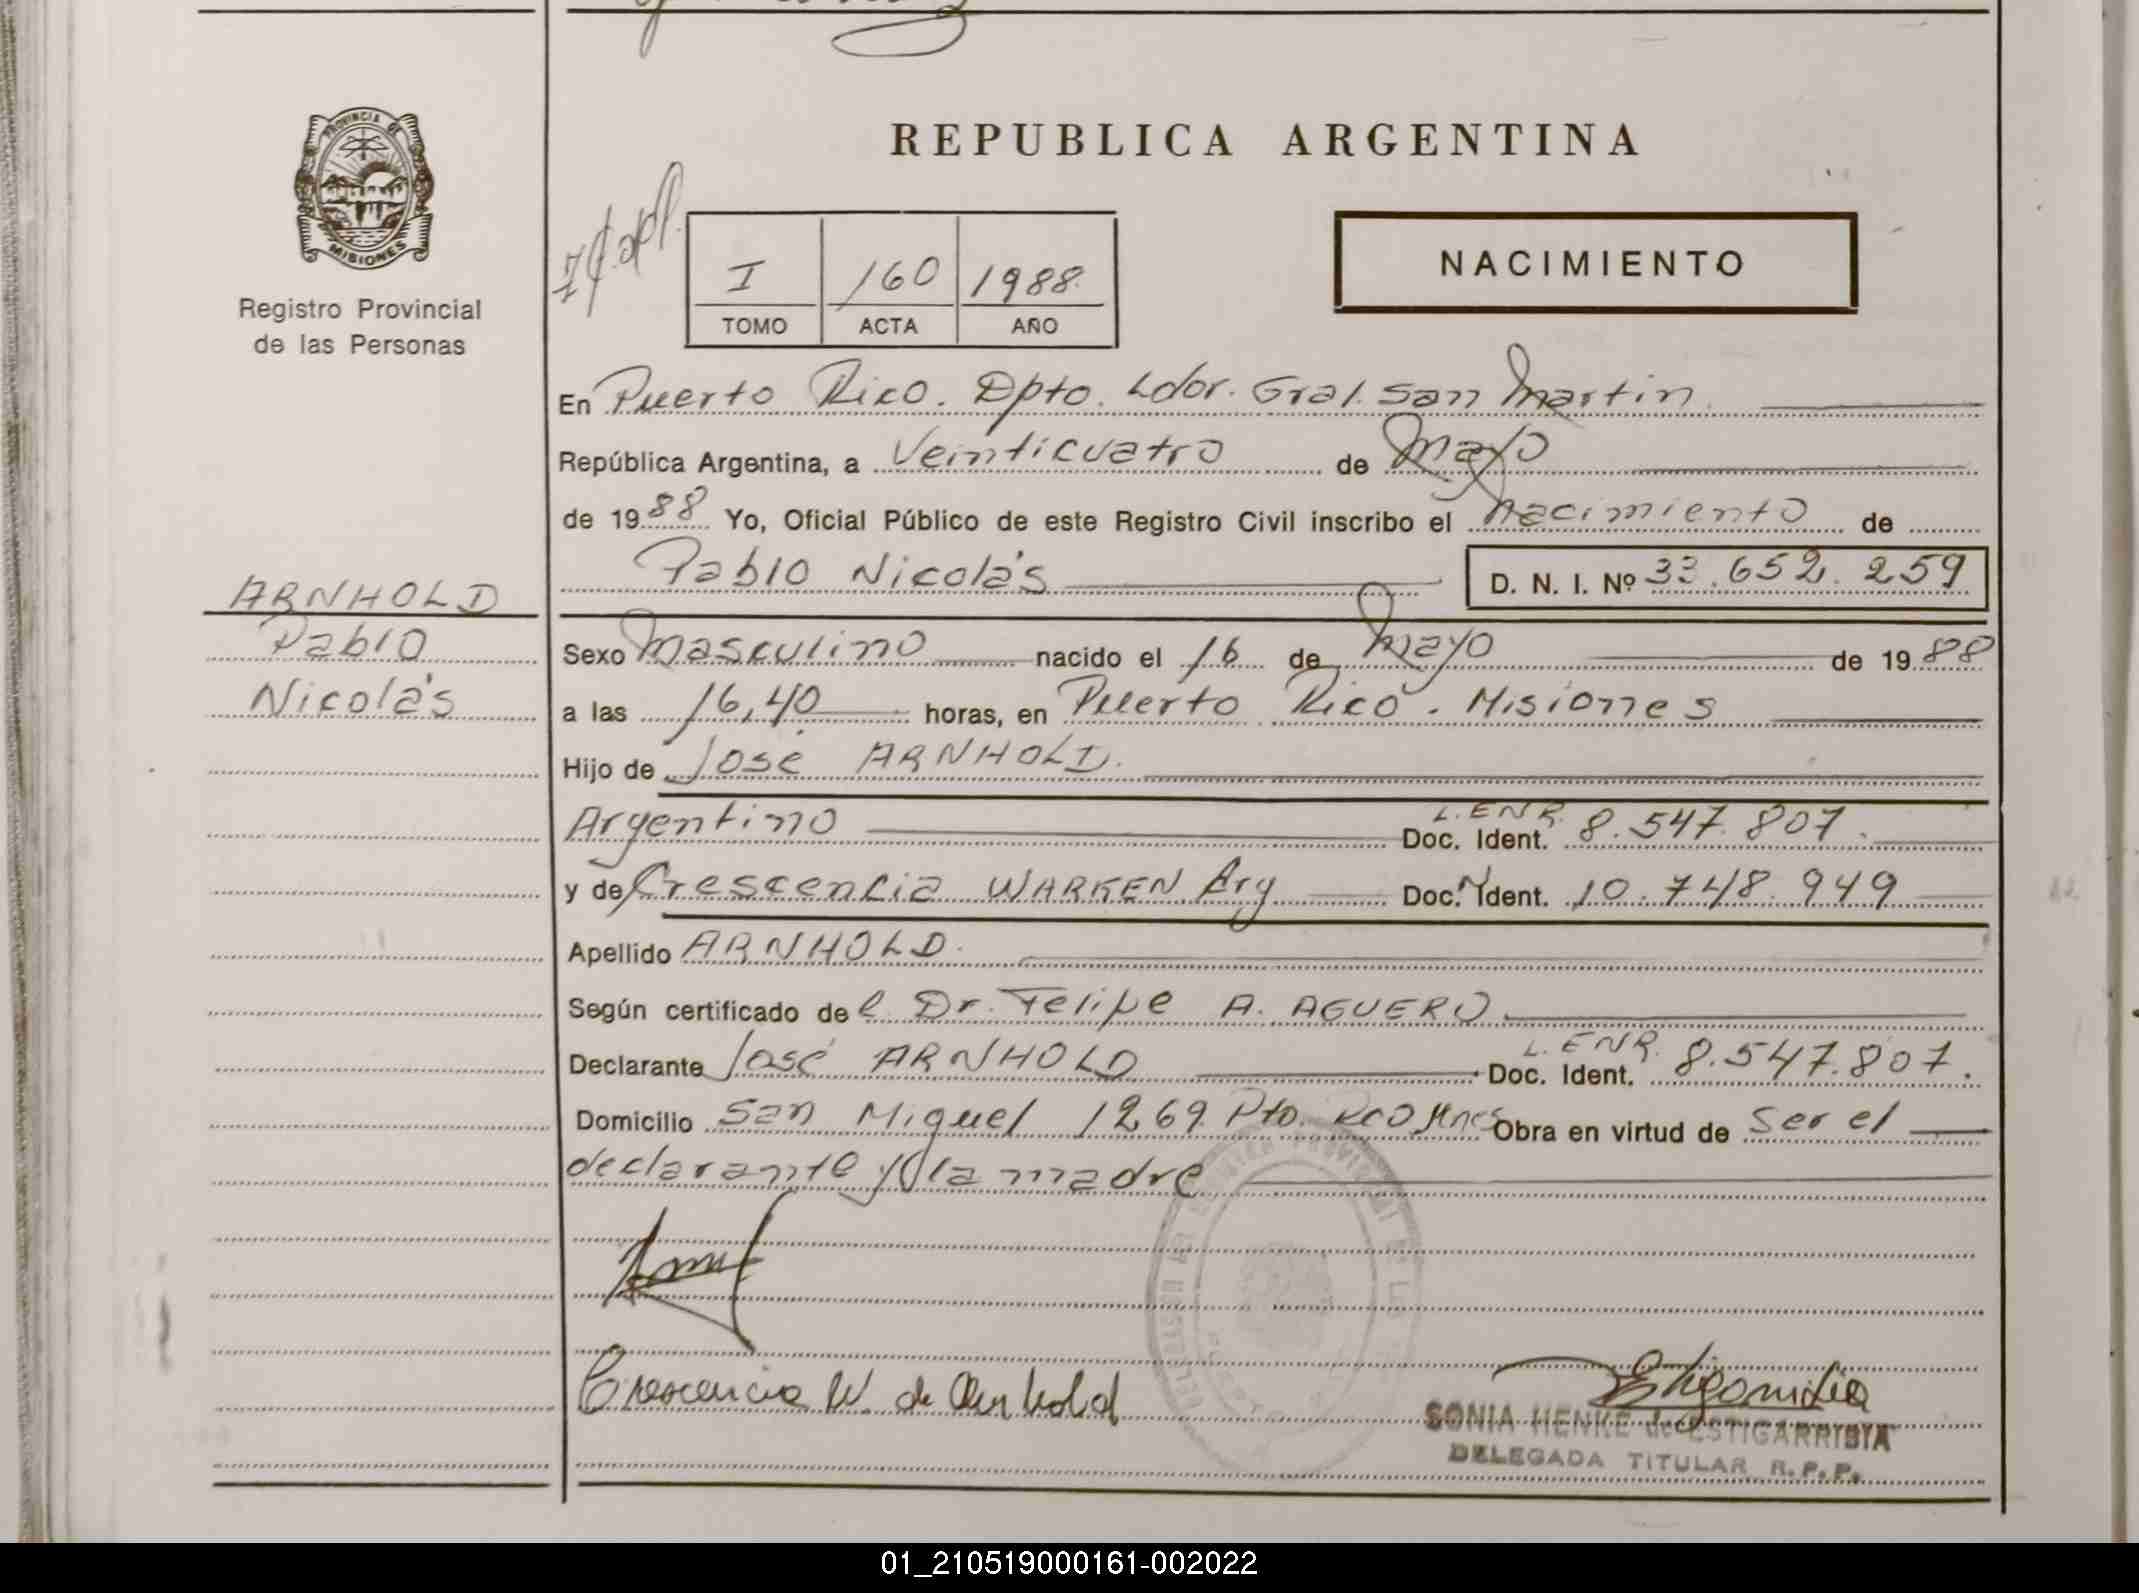 PROVINCIA DE
MISIONES
Registro Provincial
de las Personas
REPUBLICA ARGENTINA
I 160 1988
TOMO ACTA AÑO
NACIMIENTO
En Puerto Rico. Dpto. Ldor. Gral. San Martin
República Argentina, a Veinticuatro de Mayo
de 1988 Yo, Oficial Público de este Registro Civil inscribo el nacimiento de
Pablo Nicolás D. N. I. Nº 33.652.259
ARNHOLD
Pablo
Nicolás
Sexo Masculino nacido el 16 de Mayo de 1988
a las 16,40 horas, en Puerto Rico. Misiones
Hijo de José ARNHOLD.
Argentino L. ENR. Doc. Ident. 8.547.807.
y de Crescencia WARKEN Arg Doc. Ident. 10.748.949
Apellido ARNHOLD.
Según certificado del Dr. Felipe A. AGUERO
Declarante José ARNHOLD L. ENR. Doc. Ident. 8.547.807.
Domicilio San Miguel 1269 Pto. Rco Mnes Obra en virtud de Ser el
declarante y la madre
Crescencia W. de Arnhold
SONIA HENKE de ESTIGARRIBIA
DELEGADA TITULAR R.P.P.
01_210519000161-002022